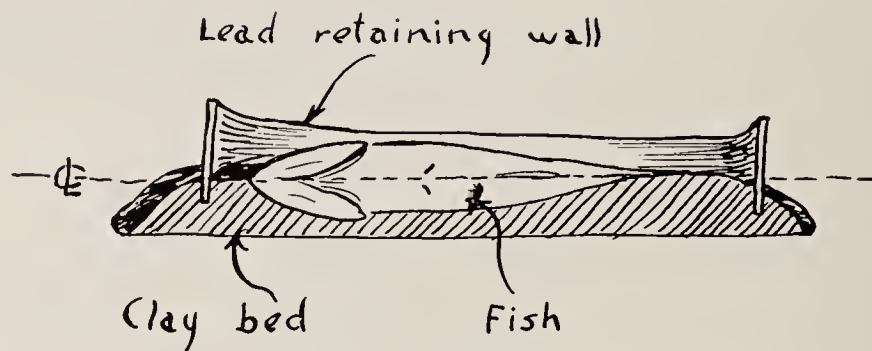 Lead retaining wall
℄
Clay bed
Fish